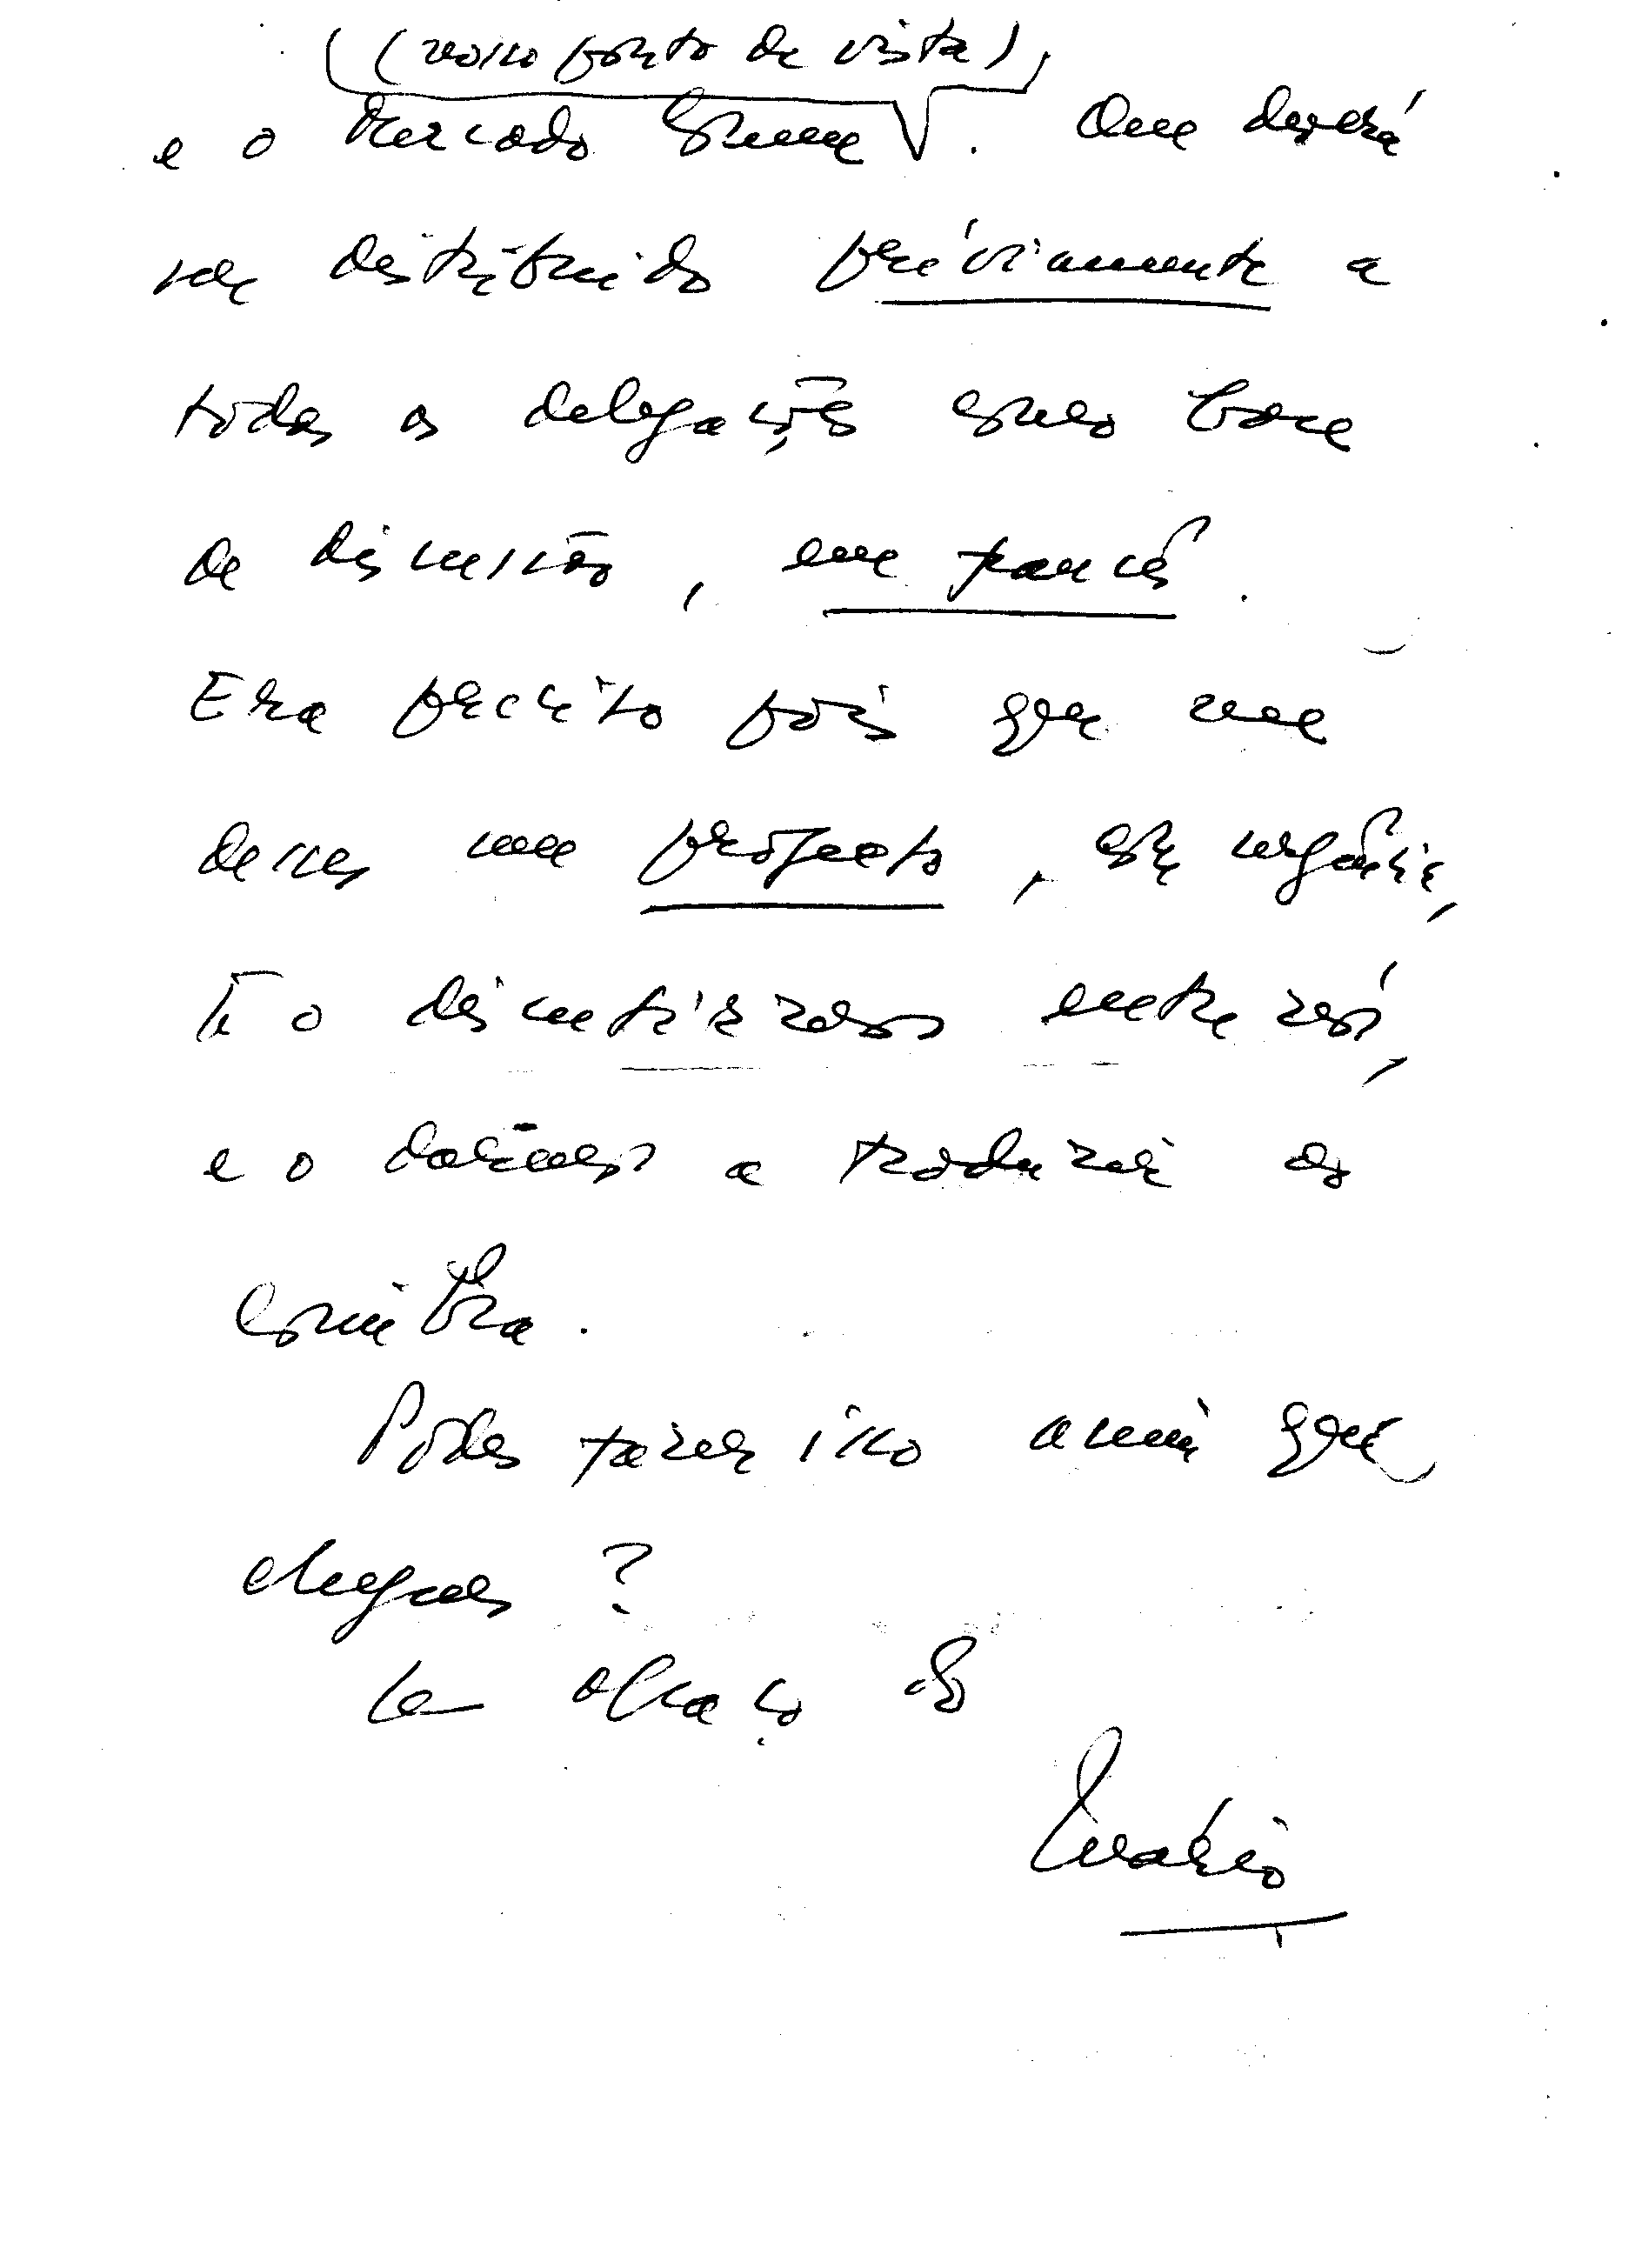 (nosso ponto de vista)
e o Mercado Comum. Que deverá
ser distribuido préviamente a
todas as delegações como base
de discussão, em francês.
Era preciso pois que me
desses um projecto, com urgência,
p.ª o discutirmos entre nós,
e o darmos a traduzir ao
Coimbra.
Podes fazer isso assim que
chegues?
Um abraço do
Mário